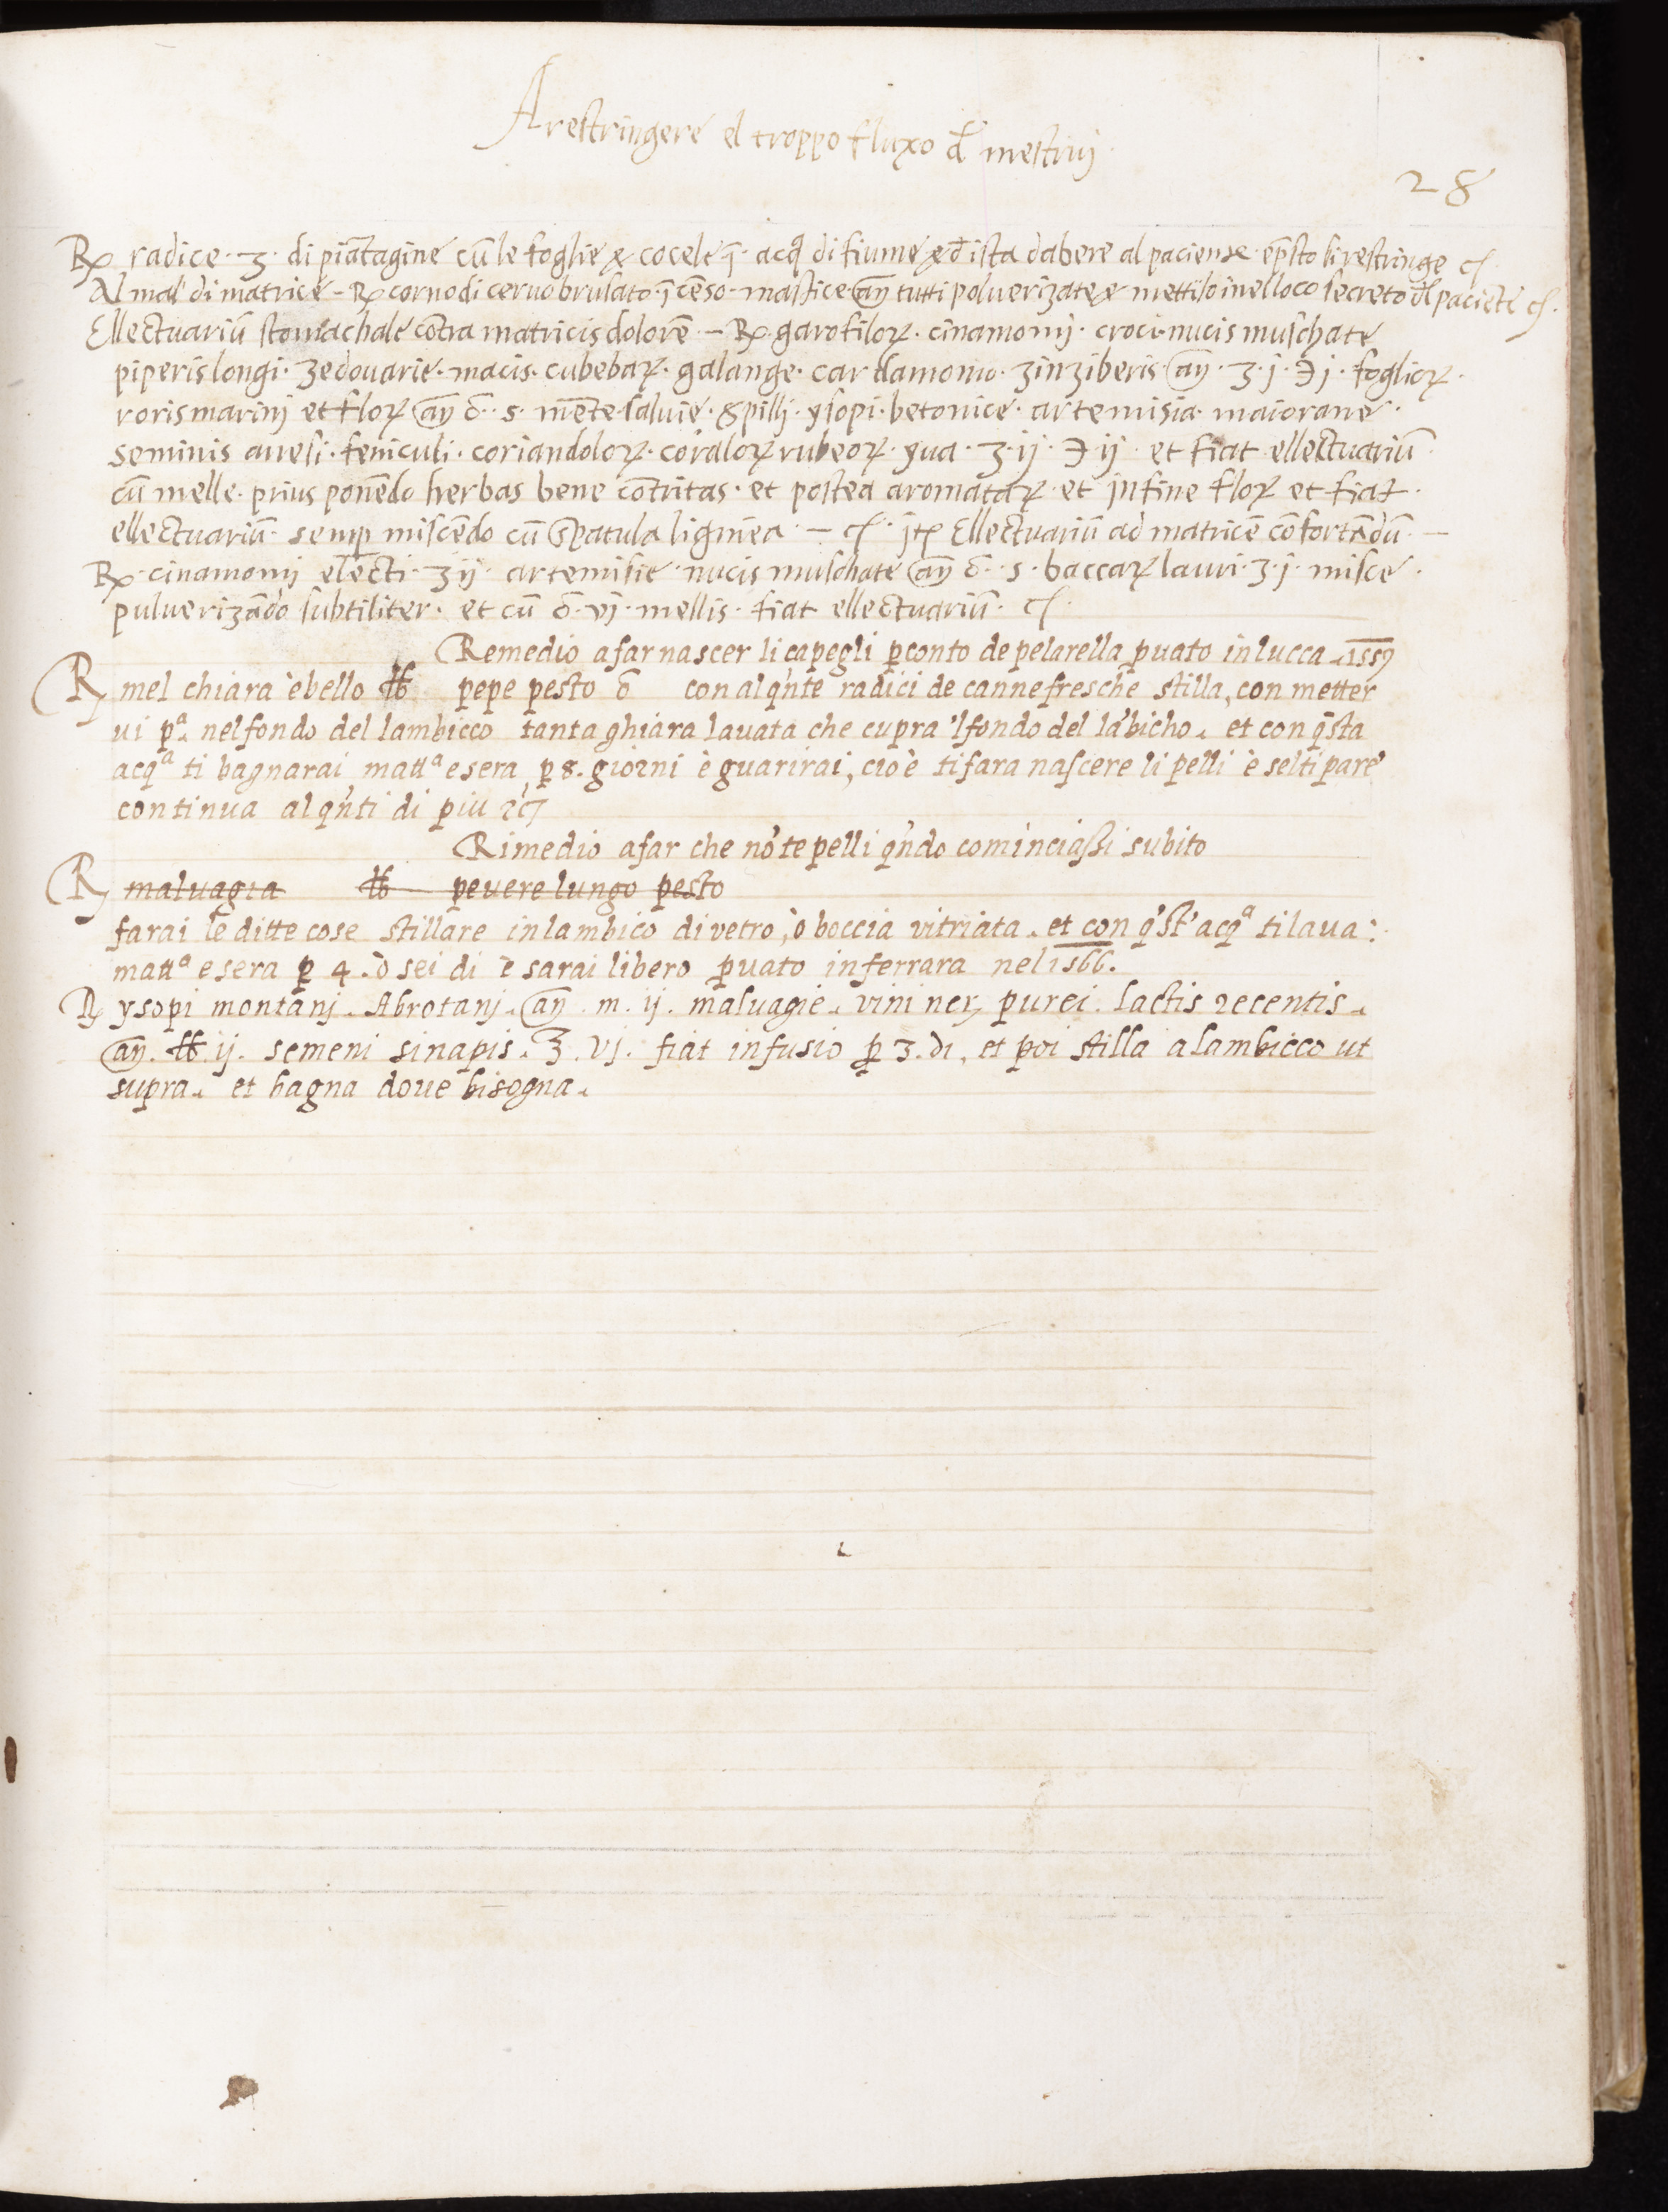 A restringere el troppo fluxo dl̄ mestrui
28
℞ radice · 3 · di piātagine cū le foglie & cocele ī acq̄ di fiume & d̄ ista da bere al paciente · e p̄sto si restringe
Al mal di matrice – ℞ corno di cervo brusato · īcēso · mastice · añ tutti polverizate & mettilo in el loco secreto dl̄ paciēte
Ellectuariū stomachale cōtra matricis dolorē – ℞ garofiloꝝ · cinamomij · croci · nucis muschate
piperis longi · zedouarie · macis · cubebaꝝ · galange · cardamomo · zinziberis · añ · ʒ · j · ℈ j · foglioꝝ ·
rorismarini et floꝝ añ · s · mēte · salvie · spilli · ysopi · betonice · artemisia · maiorane ·
seminis anesi · feniculi · coriandoloꝝ · coraloꝝ rubeoꝝ · ʒ · ij · ℈ ij · et fiat ellectuariū
cū melle · prius ponēdo herbas bene cōtritas · et postea aromataꝝ · et in fine floꝝ et fiat ·
ellectuariū · semp miscēdo cū spatula lignea · – Itē Ellectuariū ad matricē cōfortādū · –
℞ · cinamomij electi · ʒ ij · artemisie · nucis muschate añ · s · baccaꝝ lauri · ʒ · j · misce ·
pulverizādo subtiliter · et cū · vj · mellis · fiat ellectuariū ·
Remedio a far nascer li capegli ꝑ conto de pelarella ꝓuato in lucca · 1559
℞ mel chiara è bello ℔ pepe pesto con alq̄nte radici de canne fresche stilla, con metter
ui pª nel fondo del lambicco tanta ghiara lauata che cupra 'l fondo del lābicho. et con q̄sta
acqª ti bagnarai mattª e sera ꝑ 8. giorni è guarirai, cioè ti fara nascere li pelli è sel ti pare
continua alq̄nti di piu
Rimedio a far che nō te pelli q̄ndo cominciassi subito
℞ maluagia ℔ pevere lungo pesto
farai le ditte cose stillare in lambico di vetro, ò boccia vitriata. et con q̄st' acqª ti laua:
mattª e sera ꝑ 4. ò sei di è sarai libero ꝓuato in ferrara nel 1566.
℞ ysopi montanj. Abrotanj. añ. m. ij. maluagie. vini nerj purei. lactis recentis.
añ. ℔. ij. semeni sinapis. ʒ. vj. fiat infusio ꝑ 3. di, et poi stilla a lambicco ut
supra. et bagna doue bisogna.